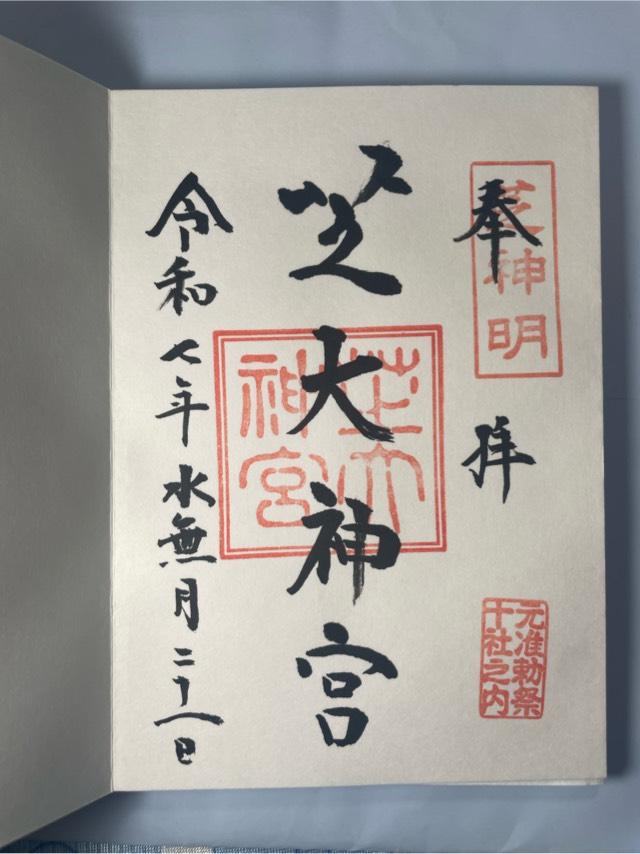 奉拝
芝神明
元准勅祭
十社之内
芝大神宮
芝大
神宮
令和七年水無月二十八日